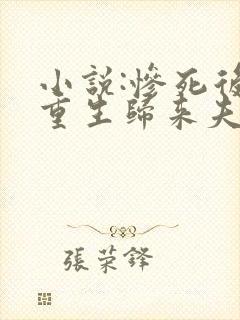 小説:慘死後
重生歸來夫
張荣鋒